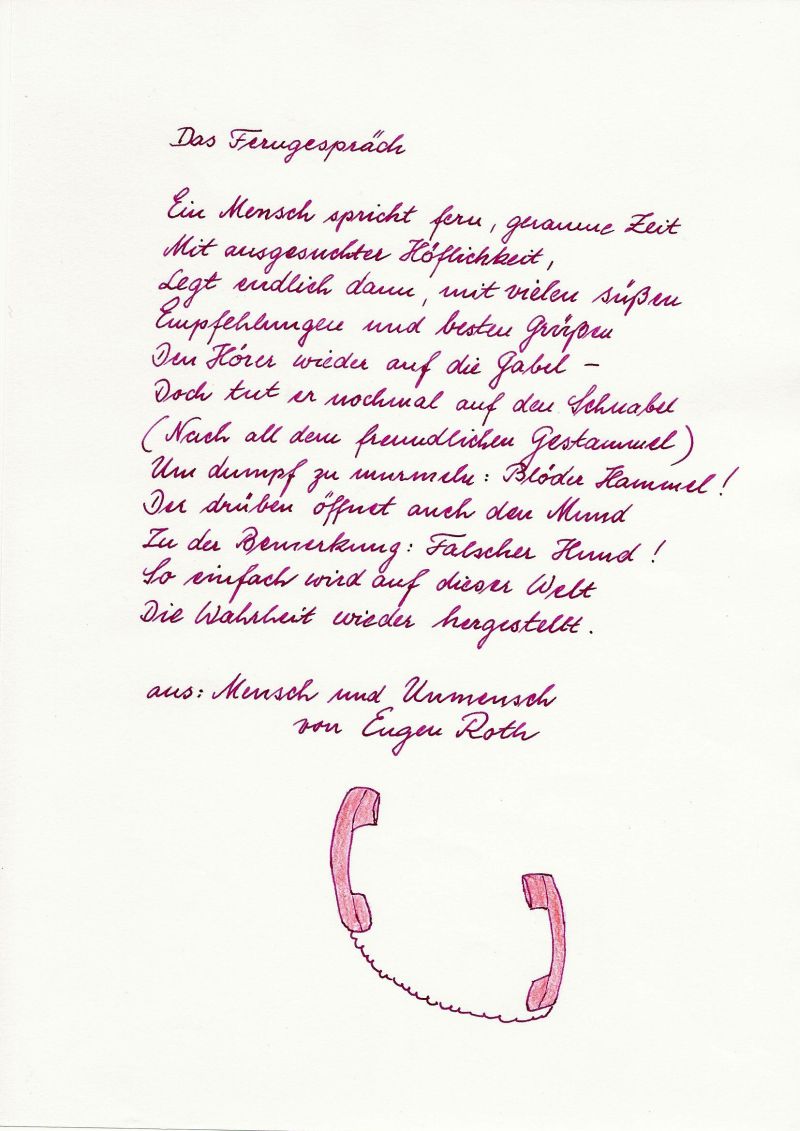 Das Ferngespräch
Ein Mensch spricht fern, geraume Zeit
Mit ausgesuchter Höflichkeit,
Legt endlich dann, mit vielen süßen
Empfehlungen und besten Grüßen
Den Hörer wieder auf die Gabel –
Doch tut er nochmal auf den Schnabel
(Nach all dem freundlichen Gestammel)
Um dumpf zu murmeln: Blöder Hammel!
Der drüben öffnet auch den Mund
Zu der Bemerkung: Falscher Hund!
So einfach wird auf dieser Welt
Die Wahrheit wieder hergestellt.
aus: Mensch und Unmensch
von Eugen Roth